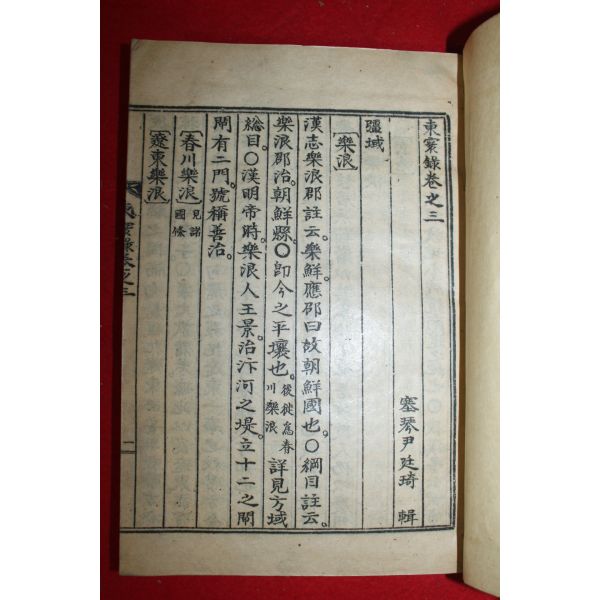 東寰錄卷之三
塞琴尹廷琦 輯
疆域
樂浪
漢志樂浪郡註云。樂鮮應邵曰故朝鮮國也。〇綱目註云。
樂浪郡治。朝鮮縣。〇卽今之平壤也。後徙爲春川樂浪 詳見方域
総目〇漢明帝時。樂浪人王景。治汴河之堤。立十二之閘
閘有二門。號稱善治。
春川樂浪 見諸國條
遼東樂浪
東寰錄卷之三